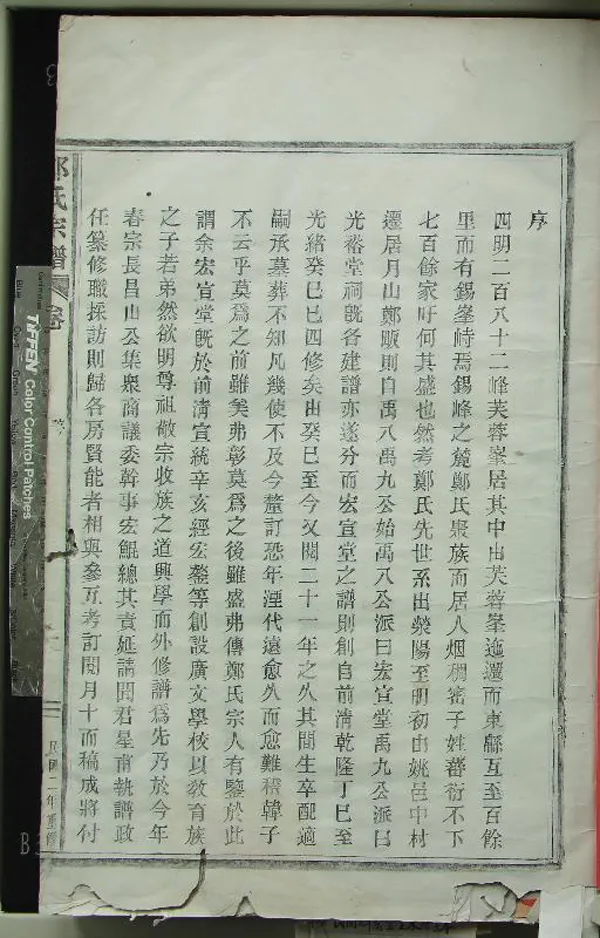 序
四明二百八十二峰芙蓉峯居其中由芙蓉峯迤邐而東緜亙至百餘
里而有錫峯峙焉錫峰之麓鄭氏聚族而居人烟稠密子姓蕃衍不下
七百餘家吁何其盛也然考鄭氏先世系出滎陽至明初由姚邑中村
遷居月山鄭賑則自禹八禹九公始禹八公派曰宏宣堂禹九公派曰
光裕堂祠旣各建譜亦遂分而宏宣堂之譜則創自前清乾隆丁巳至
光緒癸巳已四修矣由癸巳至今又閱二十一年之久其間生卒配適
嗣承墓葬不知凡幾使不及今釐訂恐年湮代遠愈久而愈難稽韓子
不云乎莫爲之前雖美弗彰莫爲之後雖盛弗傳鄭氏宗人有鑒於此
謂余宏宣堂旣於前清宣統辛亥經宏鎣等創設廣文學校以敎育族
之子若弟然欲明尊祖敬宗收族之道興學而外修譜爲先乃於今年
春宗長昌山公集衆商議委幹事宏鯤總其責延請閆君星甫執譜政
任纂修職採訪則歸各房賢能者相與參互考訂閱月十而稿成將付
鄭氏宗譜
卷
序
民國二年重修
TIFFEN Color Control Patches